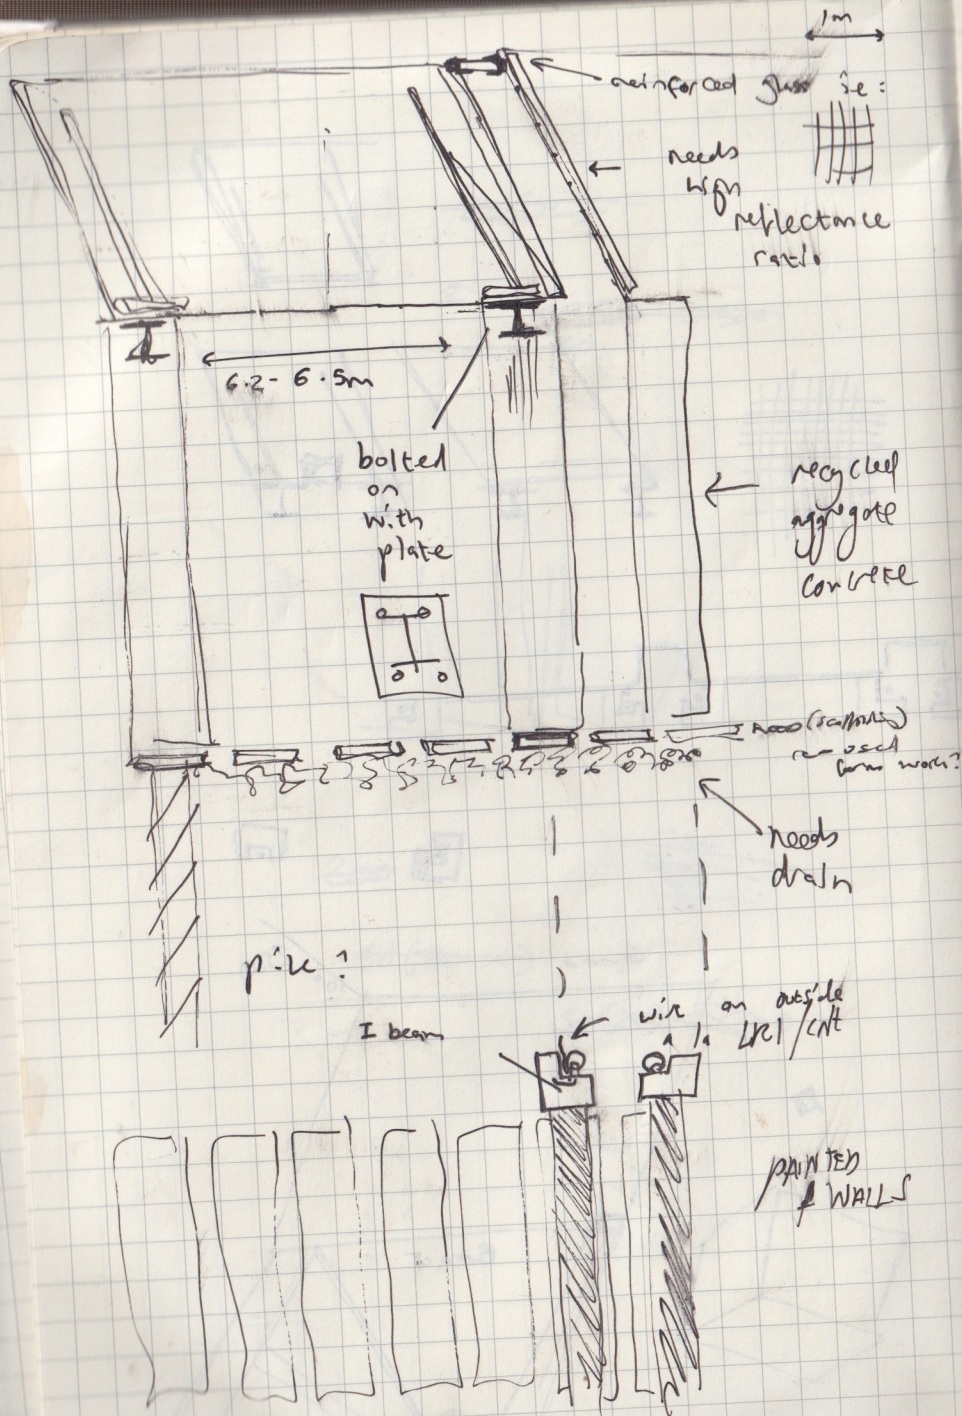 1m
reinforced glass ie:
needs
high
reflectance
ratio
6.2 - 6.5m
bolted
on
with
plate
recycled
aggregate
concrete
wood (scaffolding)
re-used
form work?
needs
drain
pile ?
wire on outside
a la
I beam
PAINTED
WALLS